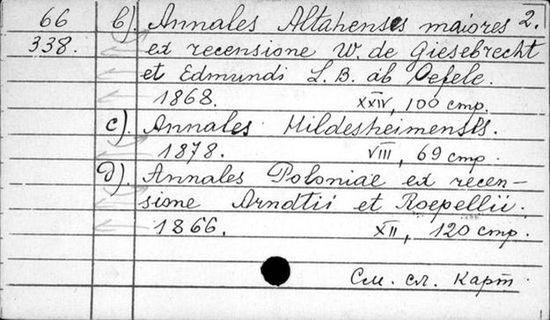 66 b). Annales Altahenses maiores 2.
338. ex recensione W. de Giesebrecht
et Edmundi L. B. ab Oefele.
1868. XXIV, 100 стр.
c). Annales Hildesheimensis.
1878. VIII, 69 стр.
d). Annales Poloniae ex recen-
sione Arndtii et Roepellii.
1866. XII, 120 стр.
См. сл. карт.